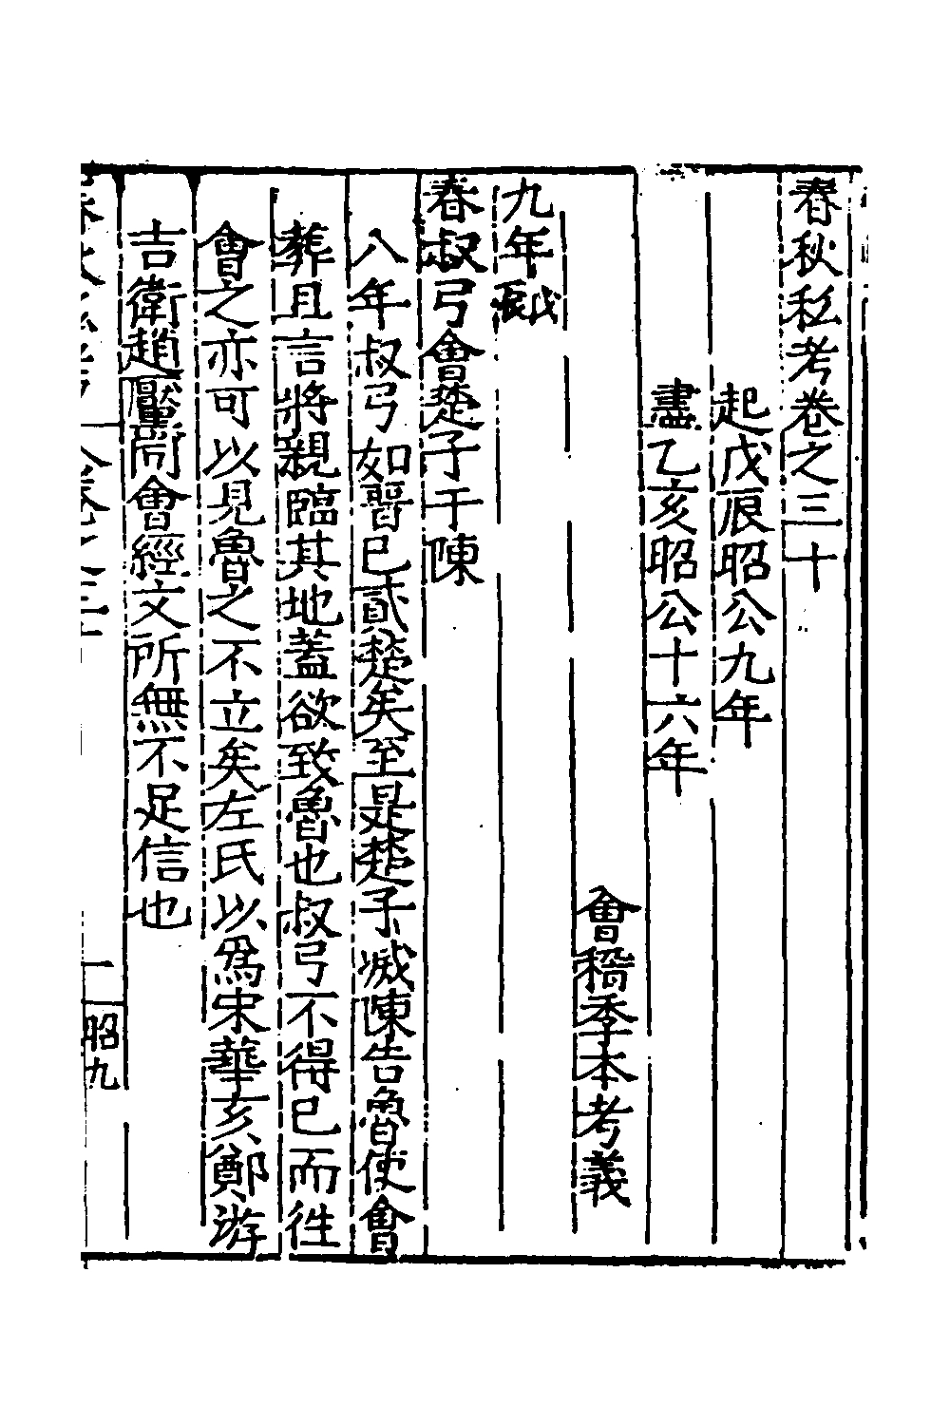 春秋私考卷之三十
起戊辰昭公九年
盡乙亥昭公十六年
會稽季本考義
九年戊辰
春叔弓會楚子于陳
八年叔弓如晉已貳楚矣至是楚子滅陳告魯使會
葬且言將親臨其地蓋欲致魯也叔弓不得已而往
會之亦可以見魯之不立矣左氏以爲宋華亥鄭游
吉衛趙黶同會經文所無不足信也
昭九